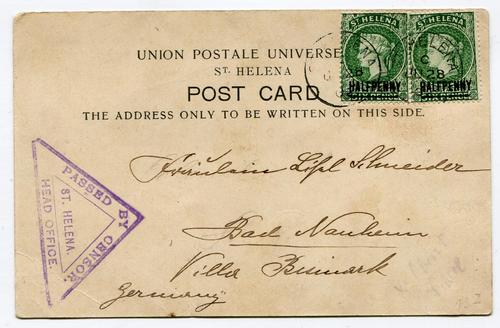 UNION POSTALE UNIVERSE
ST. HELENA
POST CARD
THE ADDRESS ONLY TO BE WRITTEN ON THIS SIDE.
ST. HELENA
HALFPENNY
ST. HELENA
HALFPENNY
28
PASSED BY CENSOR.
ST. HELENA.
HEAD OFFICE.
Fräulein Lipl Schneider
Bad Nauheim
Villa Bismark
Germany